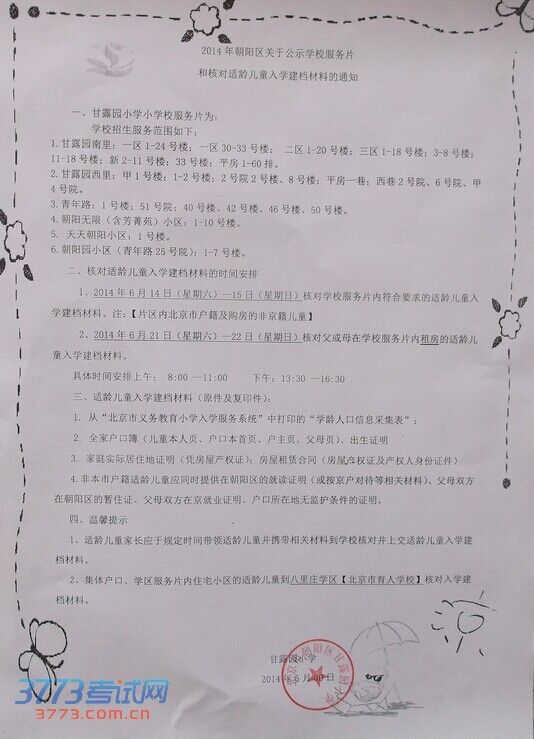 2014 年朝阳区关于公示学校服务片
和核对适龄儿童入学建档材料的通知
一、甘露园小学小学校服务片为:
学校招生服务范围如下:
1.甘露园南里: 一区 1-24 号楼; 一区 30-33 号楼; 二区 1-20 号楼; 三区 1-18 号楼; 3-8 号楼;
11-18 号楼; 新 2-11 号楼; 33 号楼; 平房 1-60 排。
2.甘露园西里: 甲 1 号楼; 1-2 号楼; 2 号院 2 号楼、8 号楼; 平房一巷; 西巷 2 号院、6 号院、甲
4 号院。
3.青年路: 1 号楼; 51 号院; 40 号楼、42 号楼、46 号楼、50 号楼。
4.朝阳无限（含芳菁苑）小区: 1-10 号楼。
5. 天天朝阳小区: 1 号楼。
6.朝阳园小区（青年路 25 号院）: 1-7 号楼。
二、核对适龄儿童入学建档材料的时间安排
1、2014 年 6 月 14 日（星期六）—15 日（星期日）核对学校服务片内符合要求的适龄儿童入
学建档材料。注:【片区内北京市户籍及购房的非京籍儿童】
2、2014 年 6 月 21 日（星期六）—22 日（星期日）核对父或母在学校服务片内租房的适龄儿
童入学建档材料。
具体时间安排上午: 8:00 —11:00 下午: 13:30 —16:30
三、适龄儿童入学建档材料（原件及复印件）:
1. 从“北京市义务教育小学入学服务系统”中打印的“学龄人口信息采集表”;
2. 全家户口簿（儿童本人页、户口本首页、户主页、父母页）、出生证明
3. 家庭实际居住地证明（凭房屋产权证）; 房屋租赁合同（房屋产权证及产权人身份证件）
4.非本市户籍适龄儿童应同时提供在朝阳区的就读证明（或按京户对待等相关材料）、父母双方
在朝阳区的暂住证、父母双方在京就业证明、户口所在地无监护条件的证明。
四、温馨提示
1、适龄儿童家长应于规定时间带领适龄儿童并携带相关材料到学校核对并上交适龄儿童入学建
档材料。
2、集体户口、学区服务片内住宅小区的适龄儿童到八里庄学区【北京市育人学校】核对入学建
档材料。
甘露园小学
2014 年 5 月 日
3773考试网
3773.com.cn